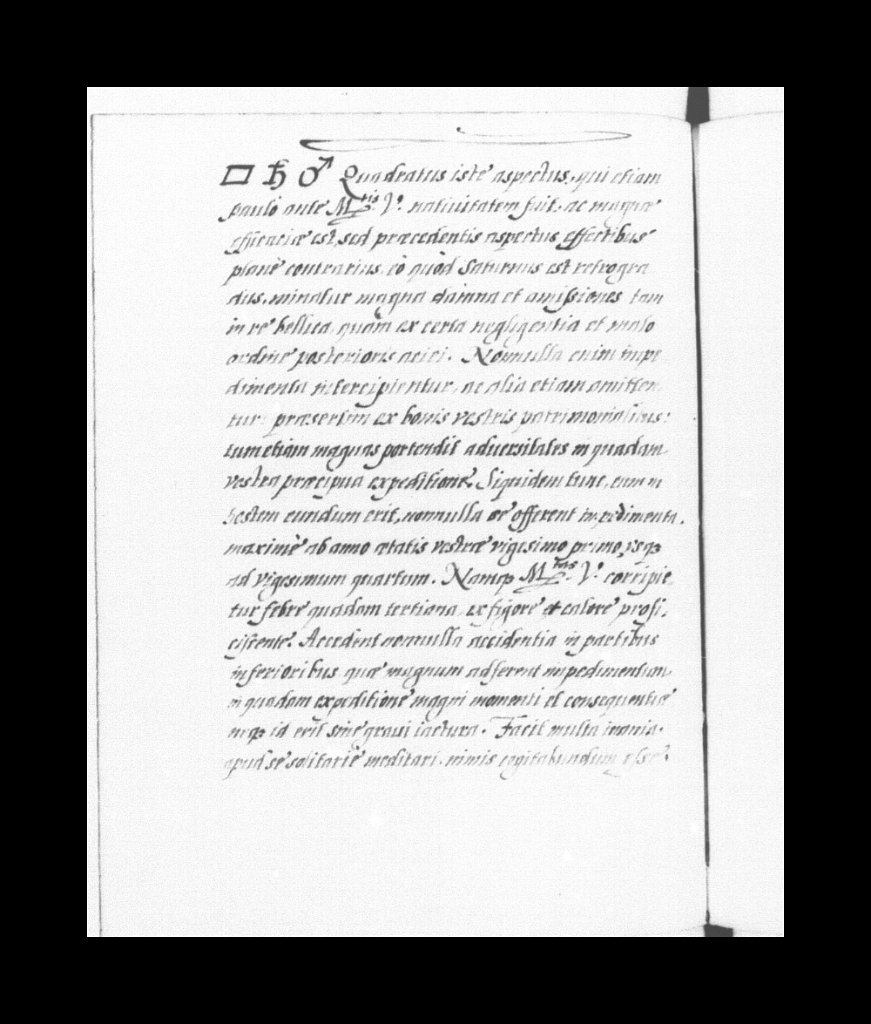 □ ♄ ♂ Quadratus iste aspectus, qui etiam
paulo ante M.tis V.e natiuitatem fuit, ac magnæ
efficaciæ est, sed præcedentis aspectus effectibus
planè contrarius, eò quòd Saturnus est retrogra
dus, minatur magna damna et amissiones tam
in re bellica, quàm ex certa negligentia et malo
ordine posterioris aciei. Nonnulla enim impe
dimenta intercipientur, ac alia etiam amitten
tur: præsertim ex bonis vestris patrimonialibus:
tum etiam magnas portendit aduersitates in quadam
vestra præcipua expeditione. Siquidem tunc, cum in
hostem eundum erit, nonnulla se offerent impedimenta,
maximè ab anno ætatis vestræ vigesimo primo, vsq3
ad vigesimum quartum. Namq3 M.tas V.e corripie
tur febre quadam tertiana, ex frigore et calore profi,
ciscente. Accedent nonnulla accidentia in partibus
inferioribus quæ magnum adferent impedimentum
in quadam expeditione magni momenti et consequentiæ
neq3 id erit sine graui iactura. Facit multa
apud se solitariè meditari, nimis cogitabundum esse,